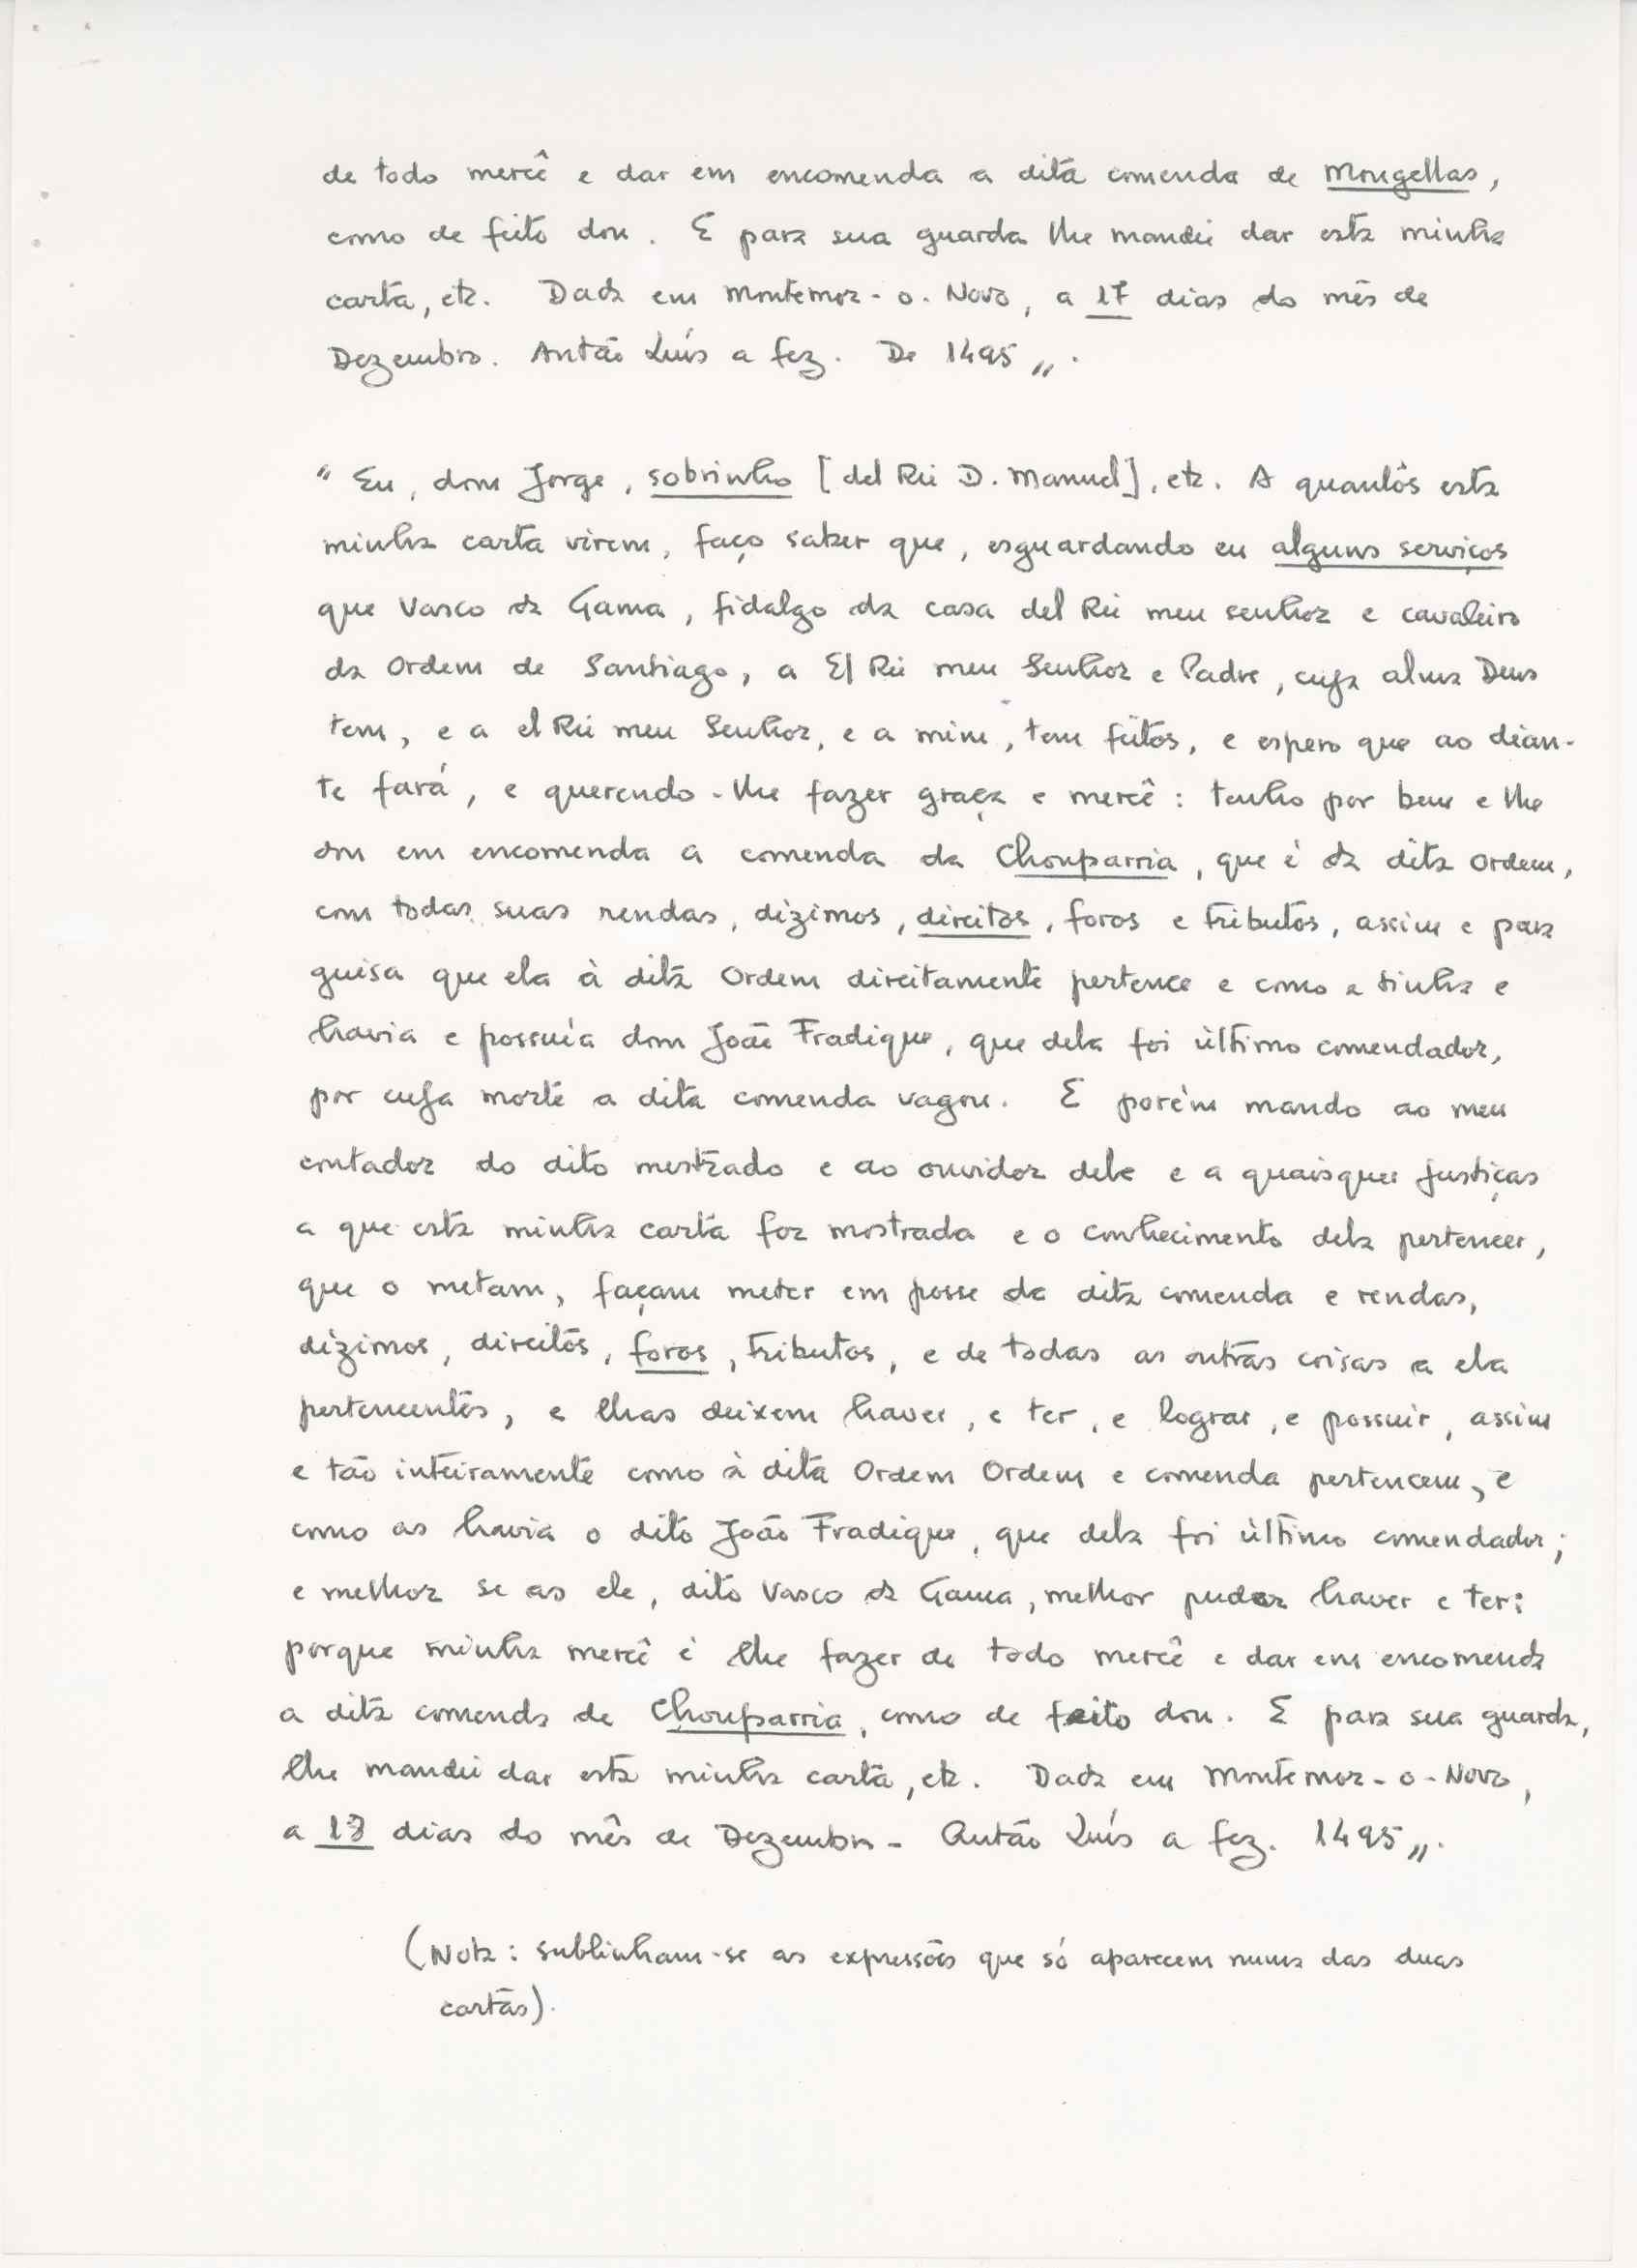 de todo mercê e dar em encomenda a dita comenda de Mougellas,
como de feito dou. E para sua guarda lhe mandei dar esta minha
carta, etc. Dada em Montemor-o-Novo, a 17 dias do mês de
Dezembro. Antão Luís a fez. De 1495".
"Eu, dom Jorge, sobrinho [del Rei D. Manuel], etc. A quantos esta
minha carta virem, faço saber que, esguardando eu alguns serviços
que Vasco da Gama, fidalgo da casa del Rei meu senhor e cavaleiro
da Ordem de Santiago, a El Rei meu Senhor e Padre, cuja alma Deus
tem, e a el Rei meu Senhor, e a mim, tem feitos, e espero que ao dian-
te fará, e querendo-lhe fazer graça e mercê: tenho por bem e lhe
dou em encomenda a comenda da Chouparria, que é da dita Ordem,
com todas suas rendas, dízimos, direitos, foros e tributos, assim e para
guisa que ela à dita Ordem direitamente pertence e como a tinha e
havia e possuía dom João Fradique, que dela foi último comendador,
por cuja morte a dita comenda vagou. E porém mando ao meu
contador do dito mestrado e ao ouvidor dele e a quaisquer justiças
a que esta minha carta for mostrada e o conhecimento dela pertencer,
que o metam, façam meter em posse da dita comenda e rendas,
dízimos, direitos, foros, tributos, e de todas as outras coisas a ela
pertencentes, e lhas deixem haver, e ter, e lograr, e possuir, assim
e tão inteiramente como à dita Ordem Ordem e comenda pertencem, e
como as havia o dito João Fradique, que dela foi último comendador;
e melhor se as ele, dito Vasco da Gama, melhor puder haver e ter:
porque minha mercê é lhe fazer de todo mercê e dar em encomenda
a dita comenda de Chouparria, como de feito dou. E para sua guarda,
lhe mandei dar esta minha carta, etc. Dada em Montemor-o-Novo,
a 18 dias do mês de Dezembro - Antão Luís a fez. 1495".
(Nota: sublinham-se as expressões que só aparecem numa das duas
cartas).